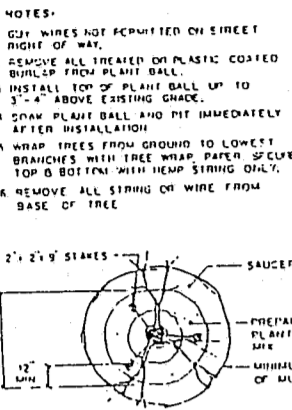 NOTES:
GUY WIRES NOT PERMITTED ON STREET
RIGHT OF WAY.
REMOVE ALL TREATED OR PLASTIC COATED
BURLAP FROM PLANT BALL.
INSTALL TOP OF PLANT BALL UP TO
3"-4" ABOVE EXISTING GRADE.
SOAK PLANT BALL AND PIT IMMEDIATELY
AFTER INSTALLATION
WRAP TREES FROM GROUND TO LOWEST
BRANCHES WITH TREE WRAP PAPER. SECURE
TOP & BOTTOM WITH HEMP STRING ONLY.
REMOVE ALL STRING OR WIRE FROM
BASE OF TREE
2"x2"x9' STAKES
SAUCER
PREPAR
PLANT
MIX
12"
MIN
MINIMU
OF MU